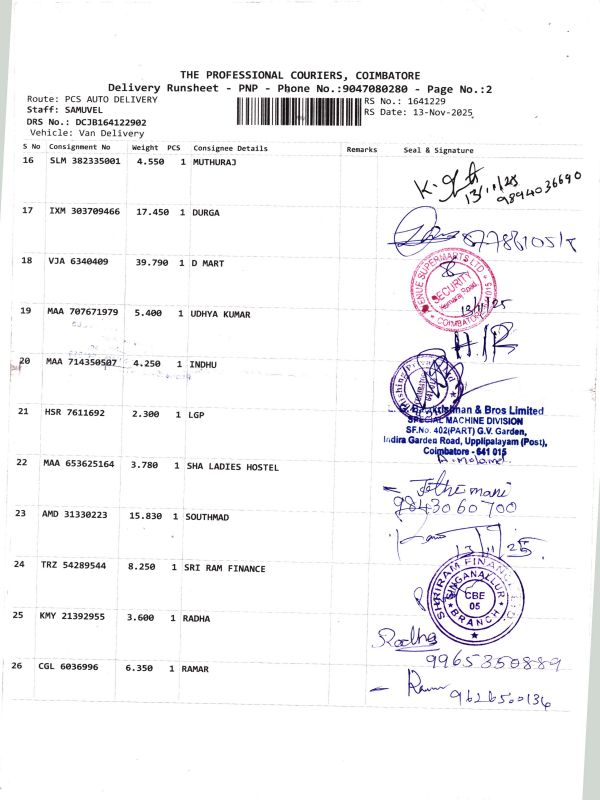 THE PROFESSIONAL COURIERS, COIMBATORE
Delivery Runsheet - PNP - Phone No.:9047080280 - Page No.:2
Route: PCS AUTO DELIVERY
RS No.: 1641229
Staff: SAMUVEL
RS Date: 13-Nov-2025
DRS No.: DCJB164122902
Vehicle: Van Delivery
S No Consignment No Weight PCS Consignee Details Remarks Seal & Signature
16 SLM 382335001 4.550 1 MUTHURAJ
13/11/25
9894036690
17 IXM 303709466 17.450 1 DURGA
18 VJA 6340409 39.790 1 D MART
AVENUE SUPERMARTS LTD
SECURITY
Kamaraj Road
COIMBATORE
13/11/25
19 MAA 707671979 5.400 1 UDHYA KUMAR
20 MAA 714350507 4.250 1 INDHU
21 HSR 7611692 2.300 1 LGP
& Bros Limited
SPECIAL MACHINE DIVISION
SF.No. 402(PART) G.V. Garden,
Indira Garden Road, Upplipalayam (Post),
Coimbatore - 641 015
22 MAA 653625164 3.780 1 SHA LADIES HOSTEL
Jothimani
9843060700
23 AMD 31330223 15.830 1 SOUTHMAD
13/11/25
24 TRZ 54289544 8.250 1 SRI RAM FINANCE
SHRIRAM FINANCE LTD
SINGANALLUR
CBE
05
BRANCH
25 KMY 21392955 3.600 1 RADHA
Radha
9965350889
26 CGL 6036996 6.350 1 RAMAR
9626500136